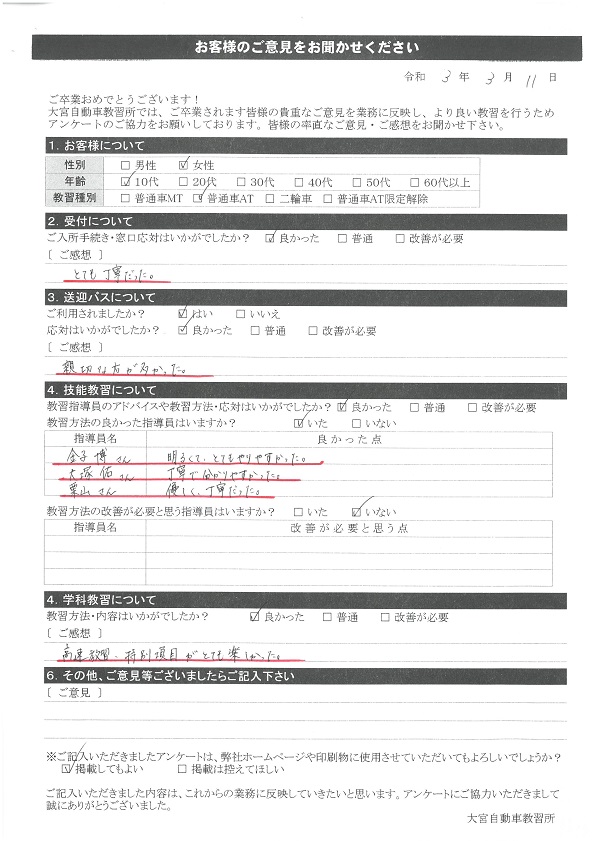 お客様のご意見をお聞かせください
令和 3 年 3 月 11 日
ご卒業おめでとうございます！
大宮自動車教習所では、ご卒業されます皆様の貴重なご意見を業務に反映し、より良い教習を行うため
アンケートのご協力をお願いしております。皆様の率直なご意見・ご感想をお聞かせ下さい。
1. お客様について
性別 □ 男性 ☑ 女性
年齢 ☑ 10代 □ 20代 □ 30代 □ 40代 □ 50代 □ 60代以上
教習種別 □ 普通車MT ☑ 普通車AT □ 二輪車 □ 普通車AT限定解除
2. 受付について
ご入所手続き・窓口応対はいかがでしたか？ ☑ 良かった □ 普通 □ 改善が必要
［ ご感想 ］
とても丁寧だった。
3. 送迎バスについて
ご利用されましたか？ ☑ はい □ いいえ
応対はいかがでしたか？ ☑ 良かった □ 普通 □ 改善が必要
［ ご感想 ］
親切な方が多かった。
4. 技能教習について
教習指導員のアドバイスや教習方法・応対はいかがでしたか？ ☑ 良かった □ 普通 □ 改善が必要
教習方法の良かった指導員はいますか？ ☑ いた □ いない
指導員名 良かった点
金子 博さん 明るくて、とてもやりやすかった。
大塚 佑さん 丁寧で分かりやすかった。
栗山さん 優しく、丁寧だった。
教習方法の改善が必要と思う指導員はいますか？ □ いた ☑ いない
指導員名 改善が必要と思う点
4. 学科教習について
教習方法・内容はいかがでしたか？ ☑ 良かった □ 普通 □ 改善が必要
［ ご感想 ］
高速教習、特別項目がとても楽しかった。
6. その他、ご意見等ございましたらご記入下さい
［ ご意見 ］
※ご記入いただきましたアンケートは、弊社ホームページや印刷物に使用させていただいてもよろしいでしょうか？
☑ 掲載してもよい □ 掲載は控えてほしい
ご記入いただきました内容は、これからの業務に反映していきたいと思います。アンケートにご協力いただきまして
誠にありがとうございました。
大宮自動車教習所